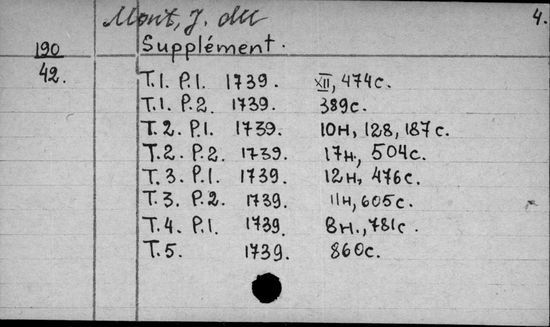 Mont, J. du 4.
190 Supplément.
42. T.1. P.1. 1739. XII, 474с.
T.1. P.2. 1739. 389с.
T.2. P.1. 1739. 10н, 128, 187с.
T.2. P.2. 1739. 17н, 504с.
T.3. P.1. 1739. 12н, 476с.
T.3. P.2. 1739. 11н, 605с.
T.4. P.1. 1739. 8н., 781с.
T.5. 1739. 860с.